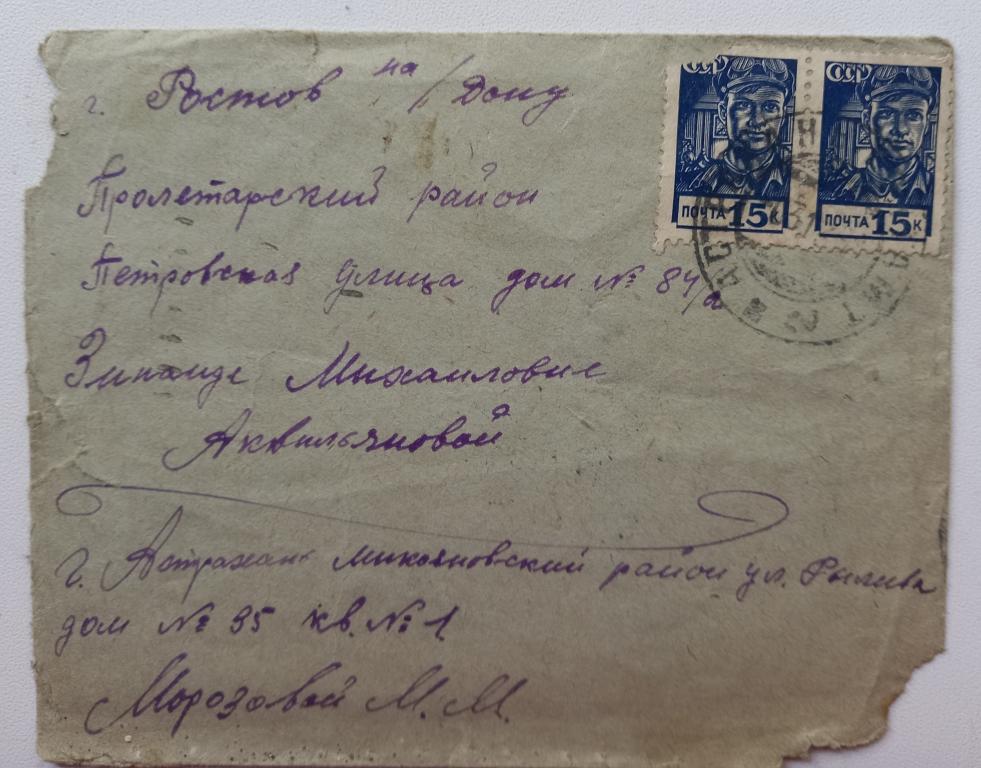 СССР СССР
ПОЧТА 15К ПОЧТА 15К
г. Ростов на/Дону
Пролетарский район
Петровская улица дом № 84/а
Зинаиде Михаиловне
Аквильяновой
г. Астрахань микояновский район ул. Рылива
дом № 95 кв. № 1
Морозовой М. М.